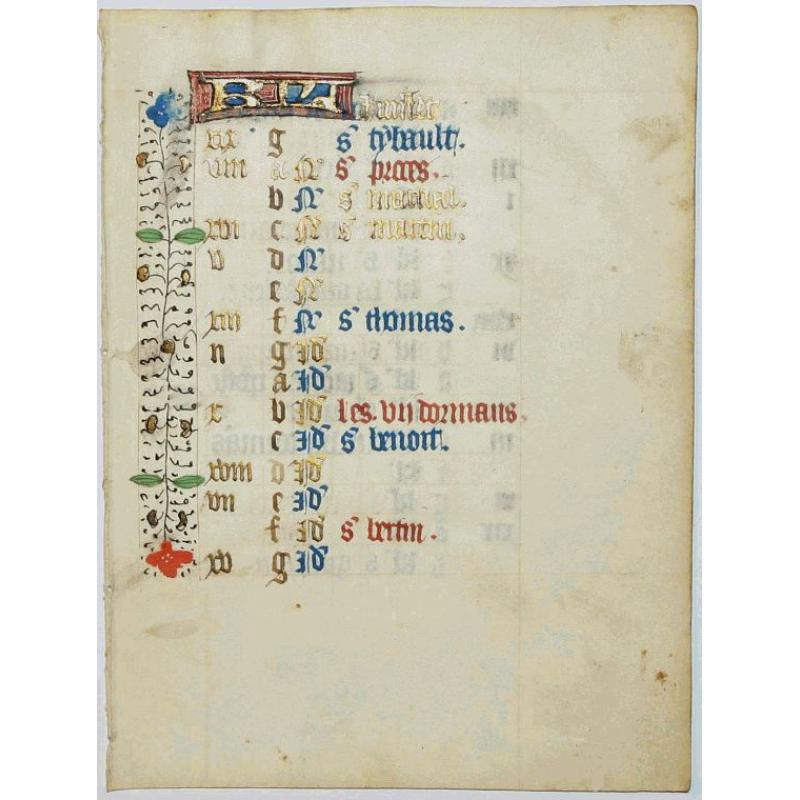 KL Juillet
xix g s' tybault.
viii a N' s' proces.
b N' s' marcial.
xvi c N' s' martin.
v d N'
e N'
xiii f N' s' thomas.
ii g Id'
a Id'
x b Id' les. vii dormans.
c Id' s' benoit.
xviii d Id'
vii e Id'
f Id' s' bertin.
xv g Id'